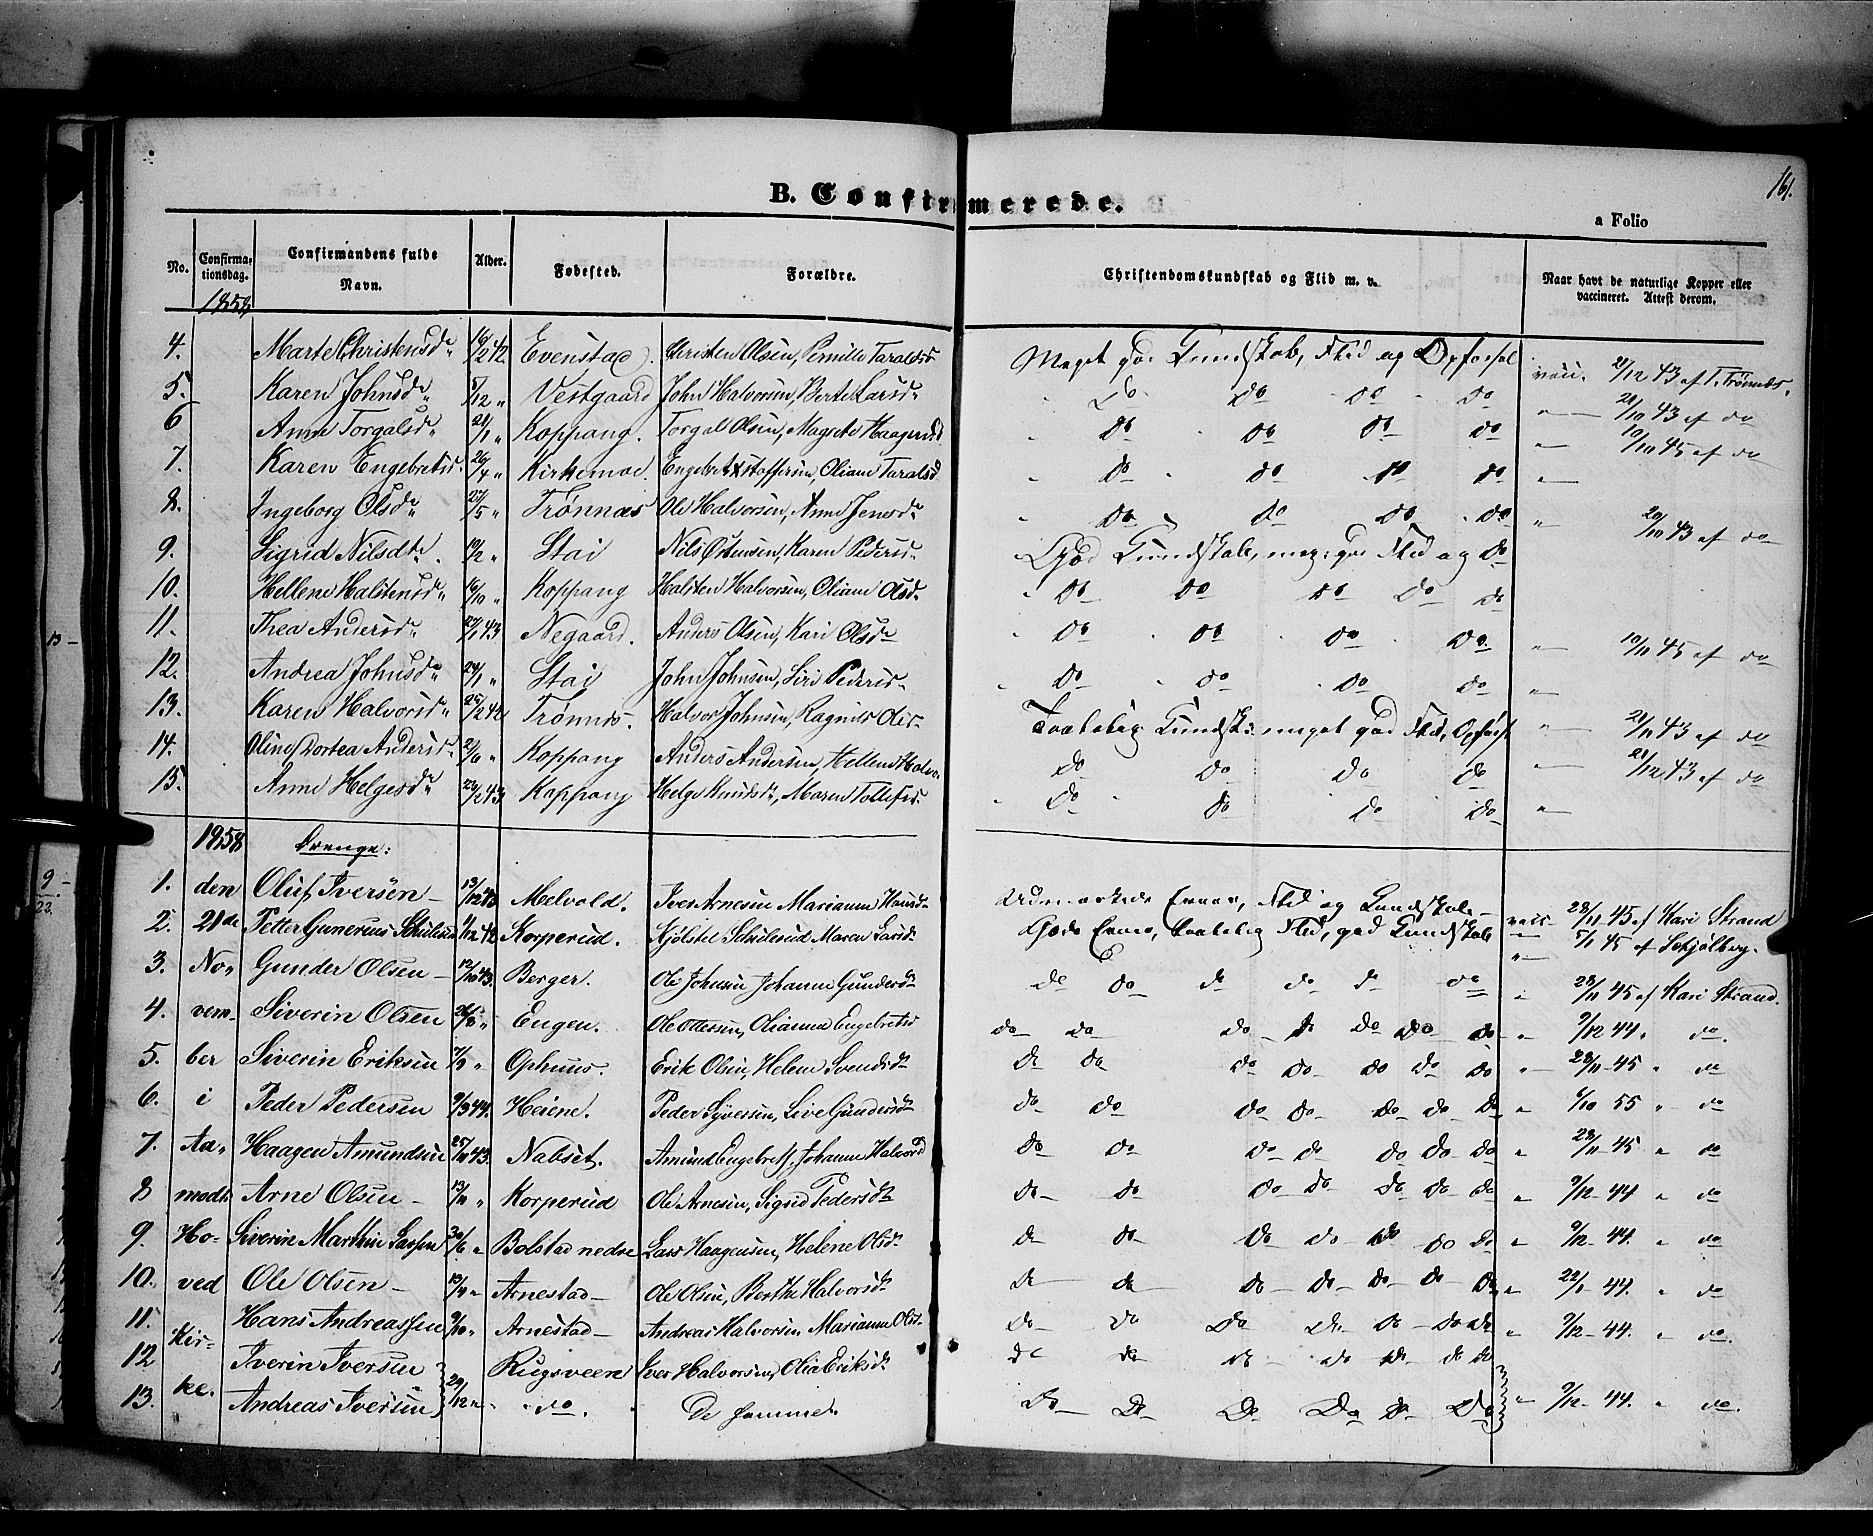 161.
B. Confirmerede.
a Folio
No. Confirmationsdag. Confirmandens fulde Navn. Alder. Fødested. Forældre. Christendomskundskab og Flid m. v. Naar havt de naturlige Kopper eller vaccineret. Attest derom.
1858
4. Marte Christensd. 16/2 42 Evenstad. Christen Olsen, Pernille Taraldsd. Meget god Kundskab, Flid og Opførsel 21/12 43 af T. Trønnes.
5. Karen Johnsd. 5/12 " Vestgaard John Halvorsen, Berte Larsd. do do do do 21/10 43 af do
6 Anne Torgalsd. 21/1 " Koppang. Torgal Olsen, Magrete Haagensd do do do do " 19/10 45 af do
7. Karen Engebretsd. 26/4 " Kirkemoe. Engebret Xstoffersen, Oliane Taralsd do do do do "
8. Ingeborg Olsd. 27/5 " Trønnæs Ole Halvorsen, Anne Jensd. do do do do " 20/10 43 af do
9. Sigrid Nilsdt. 19/2 " Stai Nils Østensen, Karen Pedersd. God Kundskab, meg: god Flid og do
10. Hellene Halstensd. 16/10 " Koppang Halsten Halvorsen, Oliane Olsd. do do do do do
11. Thea Andersd. 27/1 43 Negaard. Anders Olsen, Kari Olsd. do do do do " 19/10 45 af do
12. Andrea Johnsd. 24/1 " Stai John Johnsen, Siri Pedersd. do do do do "
13. Karen Halvorsd. 25/2 42 Trønnes. Halvor Johnsen, Ragnild Olsd. Taalelig Kundsk: meget god Flid, Opførs: " 21/11 43 af do
14. Oline Dortea Andersd. 2/6 " Koppang Anders Andersen, Hellene Halvo. do do do do " 21/12 43 af do
15. Anne Helgesd. 22/2 43 Koppang Helge Knudsd., Maren Tollefsd. do do do do "
1858 Drenge:
1. den Oluf Iversen 13/12 43 Melvold. Iver Arnesen Marianne Hansd. Udmærkede Evner, Flid og Kundskab vacc. 28/11 45 af Kari Strand
2. 21de Petter Gunerius Schulerud 1/12 42 Korperud. Kjølstel Schulerud Maren Larsd. Gode Evner, taalelig Flid, god Kundskab " 5/1 45 af Schjølberg.
3. No- Gunder Olsen 12/10 43. Berger. Ole Johnsen Johanne Gundersd. do do do do do do " 28/11 45 af Kari Strand.
4. vem- Siverin Olsen 26/8 " Engen. Ole Ottersen, Olianna Engebretsd do do do do do do do " 9/12 44 " do.
5. ber Siverin Eriksen 7/9 " Ophuus. Erik Olsen, Helene Svendsd. do do do do do do do " 28/11 45 " do
6. i Peder Pedersen 9/3 44. Heiene. Peder Syversen, Live Gundersd. do do do do do do do " 6/10 55 " do
7. Aa- Haagen Amundsen 25/10 43. Nabset. Amund Engebrets. Johanne Halvorsd do do do do do do do " 28/11 45 " do
8 modts Arne Olsen 13/11 " Korperud Ole Arnesen, Sigrid Pedersd. do do do do do do do " 9/12 44 " do
9. Ho- Siverin Marthin Larsen 30/6 " Bolstad nedre Lars Haagensen, Helene Olsd. do do do do do do do " 9/12 44. " do
10. ved Ole Olsen 13/11 " Arnestad Ole Olsen, Berthe Halvorsd. do do do do do do do " 22/1 44. " do
11. Kir- Hans Andreassen 9/10 " Arnestad Andreas Halvorsen Marianne Olsd. do do do do do do do " 9/12 44. " do.
12 Iverin Iversen Rugsveen Iver Halvorsen, Olia Eriksd. do do do do do do do
13. ke. Andreas Iversen 29/12 " do. De samme. do do do do do do " 9/12 44. " do.